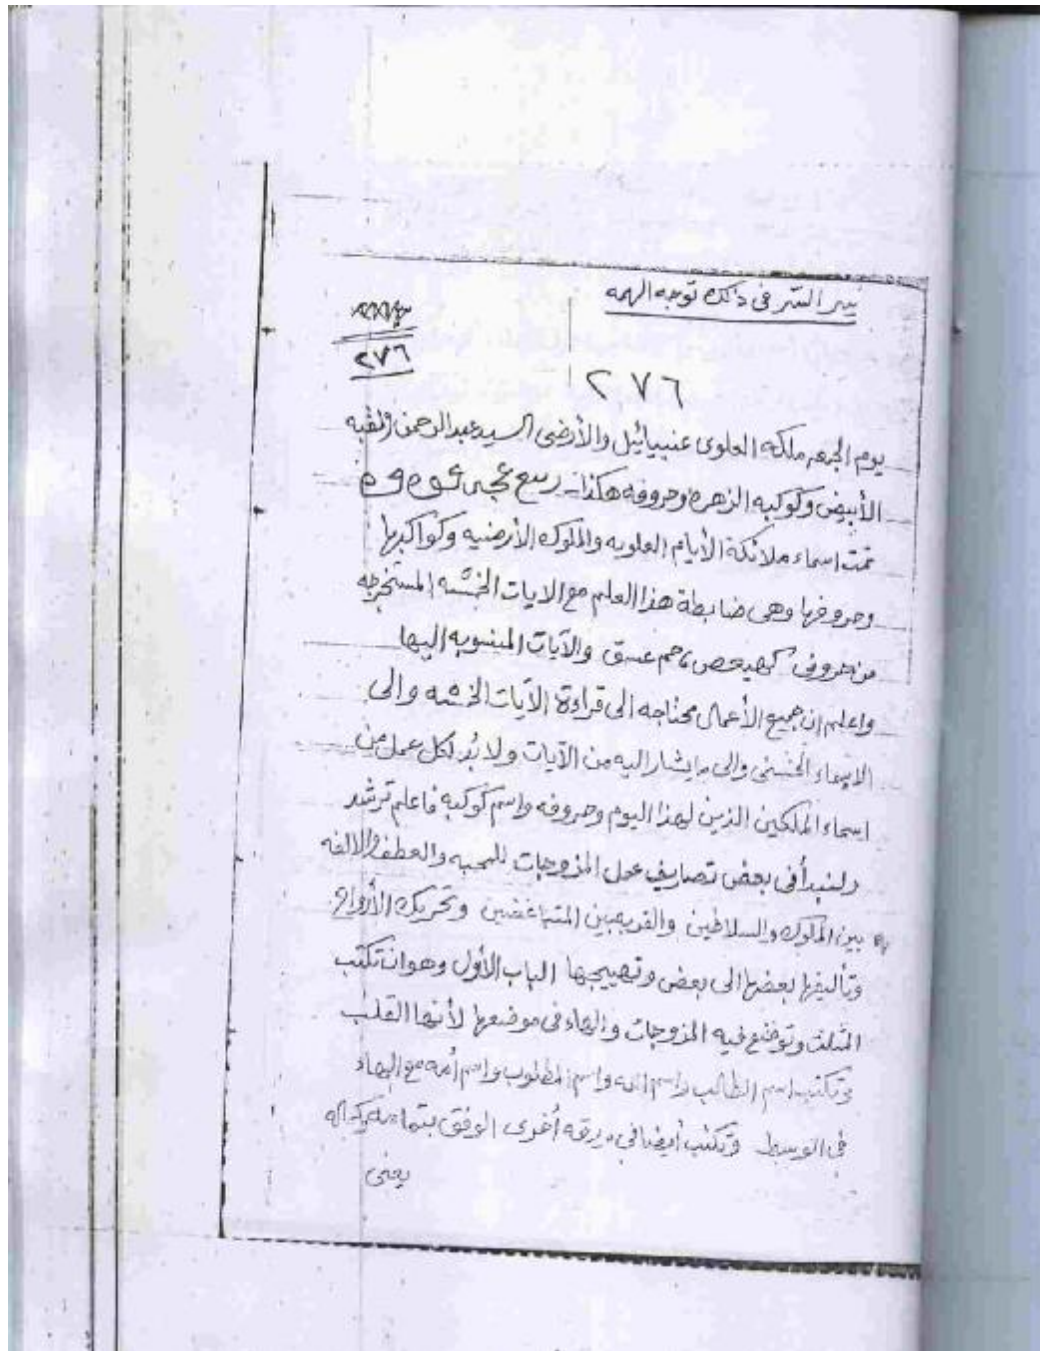 سر السر فى ذلك توجه الهمه
٢٧٦
٢٧٦
يوم الجمعه ملكه العلوى عنييائيل والأرضى السيد عبدالرحمن ولقبه
الأبيض وكوكبه الزهره وحروفه هكذا
تمت اسماء ملائكة الأيام العلويه والملوك الأرضيه وكواكبها
وحروفها وهى ضابطة هذا العلم مع الايات الخمسه المستخرجه
من حروف كهيعص، حم عسق والآيات المنسوبه اليها
واعلم ان جميع الأعمال محتاجه الى قراءة الآيات الخمسه والى
الاسماء الحسنى والى مايشار اليه من الآيات ولابُد لكل عمل من
اسماء الملكين الذين لهذا اليوم وحروفه واسم كوكبه فاعلم ترشد
ولنبدأ فى بعض تصاريف عمل المزوجات للمحبه والعطف والالفه
بين الملوك والسلاطين والقريبين المتباغضين وتحريك الأرواح
وتأليفها بعضها الى بعض وتهييجها الباب الأول وهو ان تكتب
المثلث وتوضع فيه المزوجات والهاء فى موضعها لأنها القلب
وتكتب اسم الطالب واسم امه واسم المطلوب واسم أمه مع الهاء
فى الوسط وتكتب أيضا فى ورقه أخرى الوفق بتمامه وكماله
يعنى